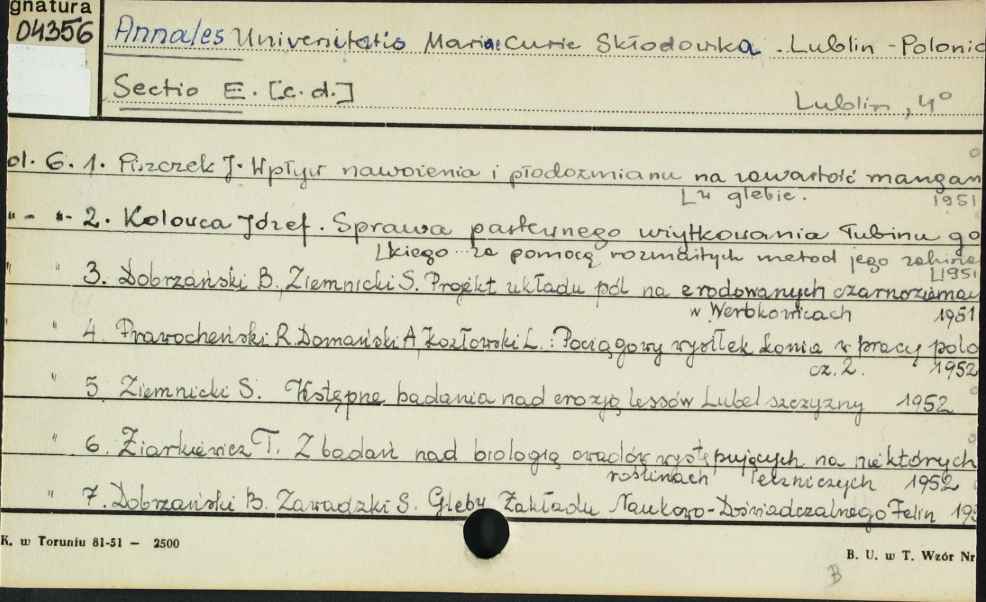 gnatura
04356
Annales Universitatis Mariae Curie Skłodowska. Lublin - Polonia
Sectio E. [c.d.]
Lublin, 4°
ol. 6. 1. Piszczek J. Wpływ nawożenia i płodozmianu na zawartość mangan
[u glebie. 1951
" - "- 2. Kolouca Józef. Sprawa pastewnego użytkowania Łubinu go
[kiego za pomocą rozmaitych metod jego
[1951
" " 3. Dobrzański B., Ziemnicki S. Projekt układu pól na erodowanych czarnoziemac
w Werbkowicach 1951
" 4. Prawocheński R. Domański A, Kozłowski L.: Pociągowy wysiłek konia w pracy polo
cz. 2. 1952
" 5. Ziemnicki S. Wstępne badania nad erozją lessów Lubelszczyzny 1952
" 6. Ziarkiewicz T. Z badań nad biologią owadów występujących na niektórych
roślinach leczniczych 1952
" 7. Dobrzański B. Zawadzki S. Gleby Zakładu Naukowo-Doświadczalnego Felin 195
K. w Toruniu 81-51 - 2500
B. U. w T. Wzór Nr
B